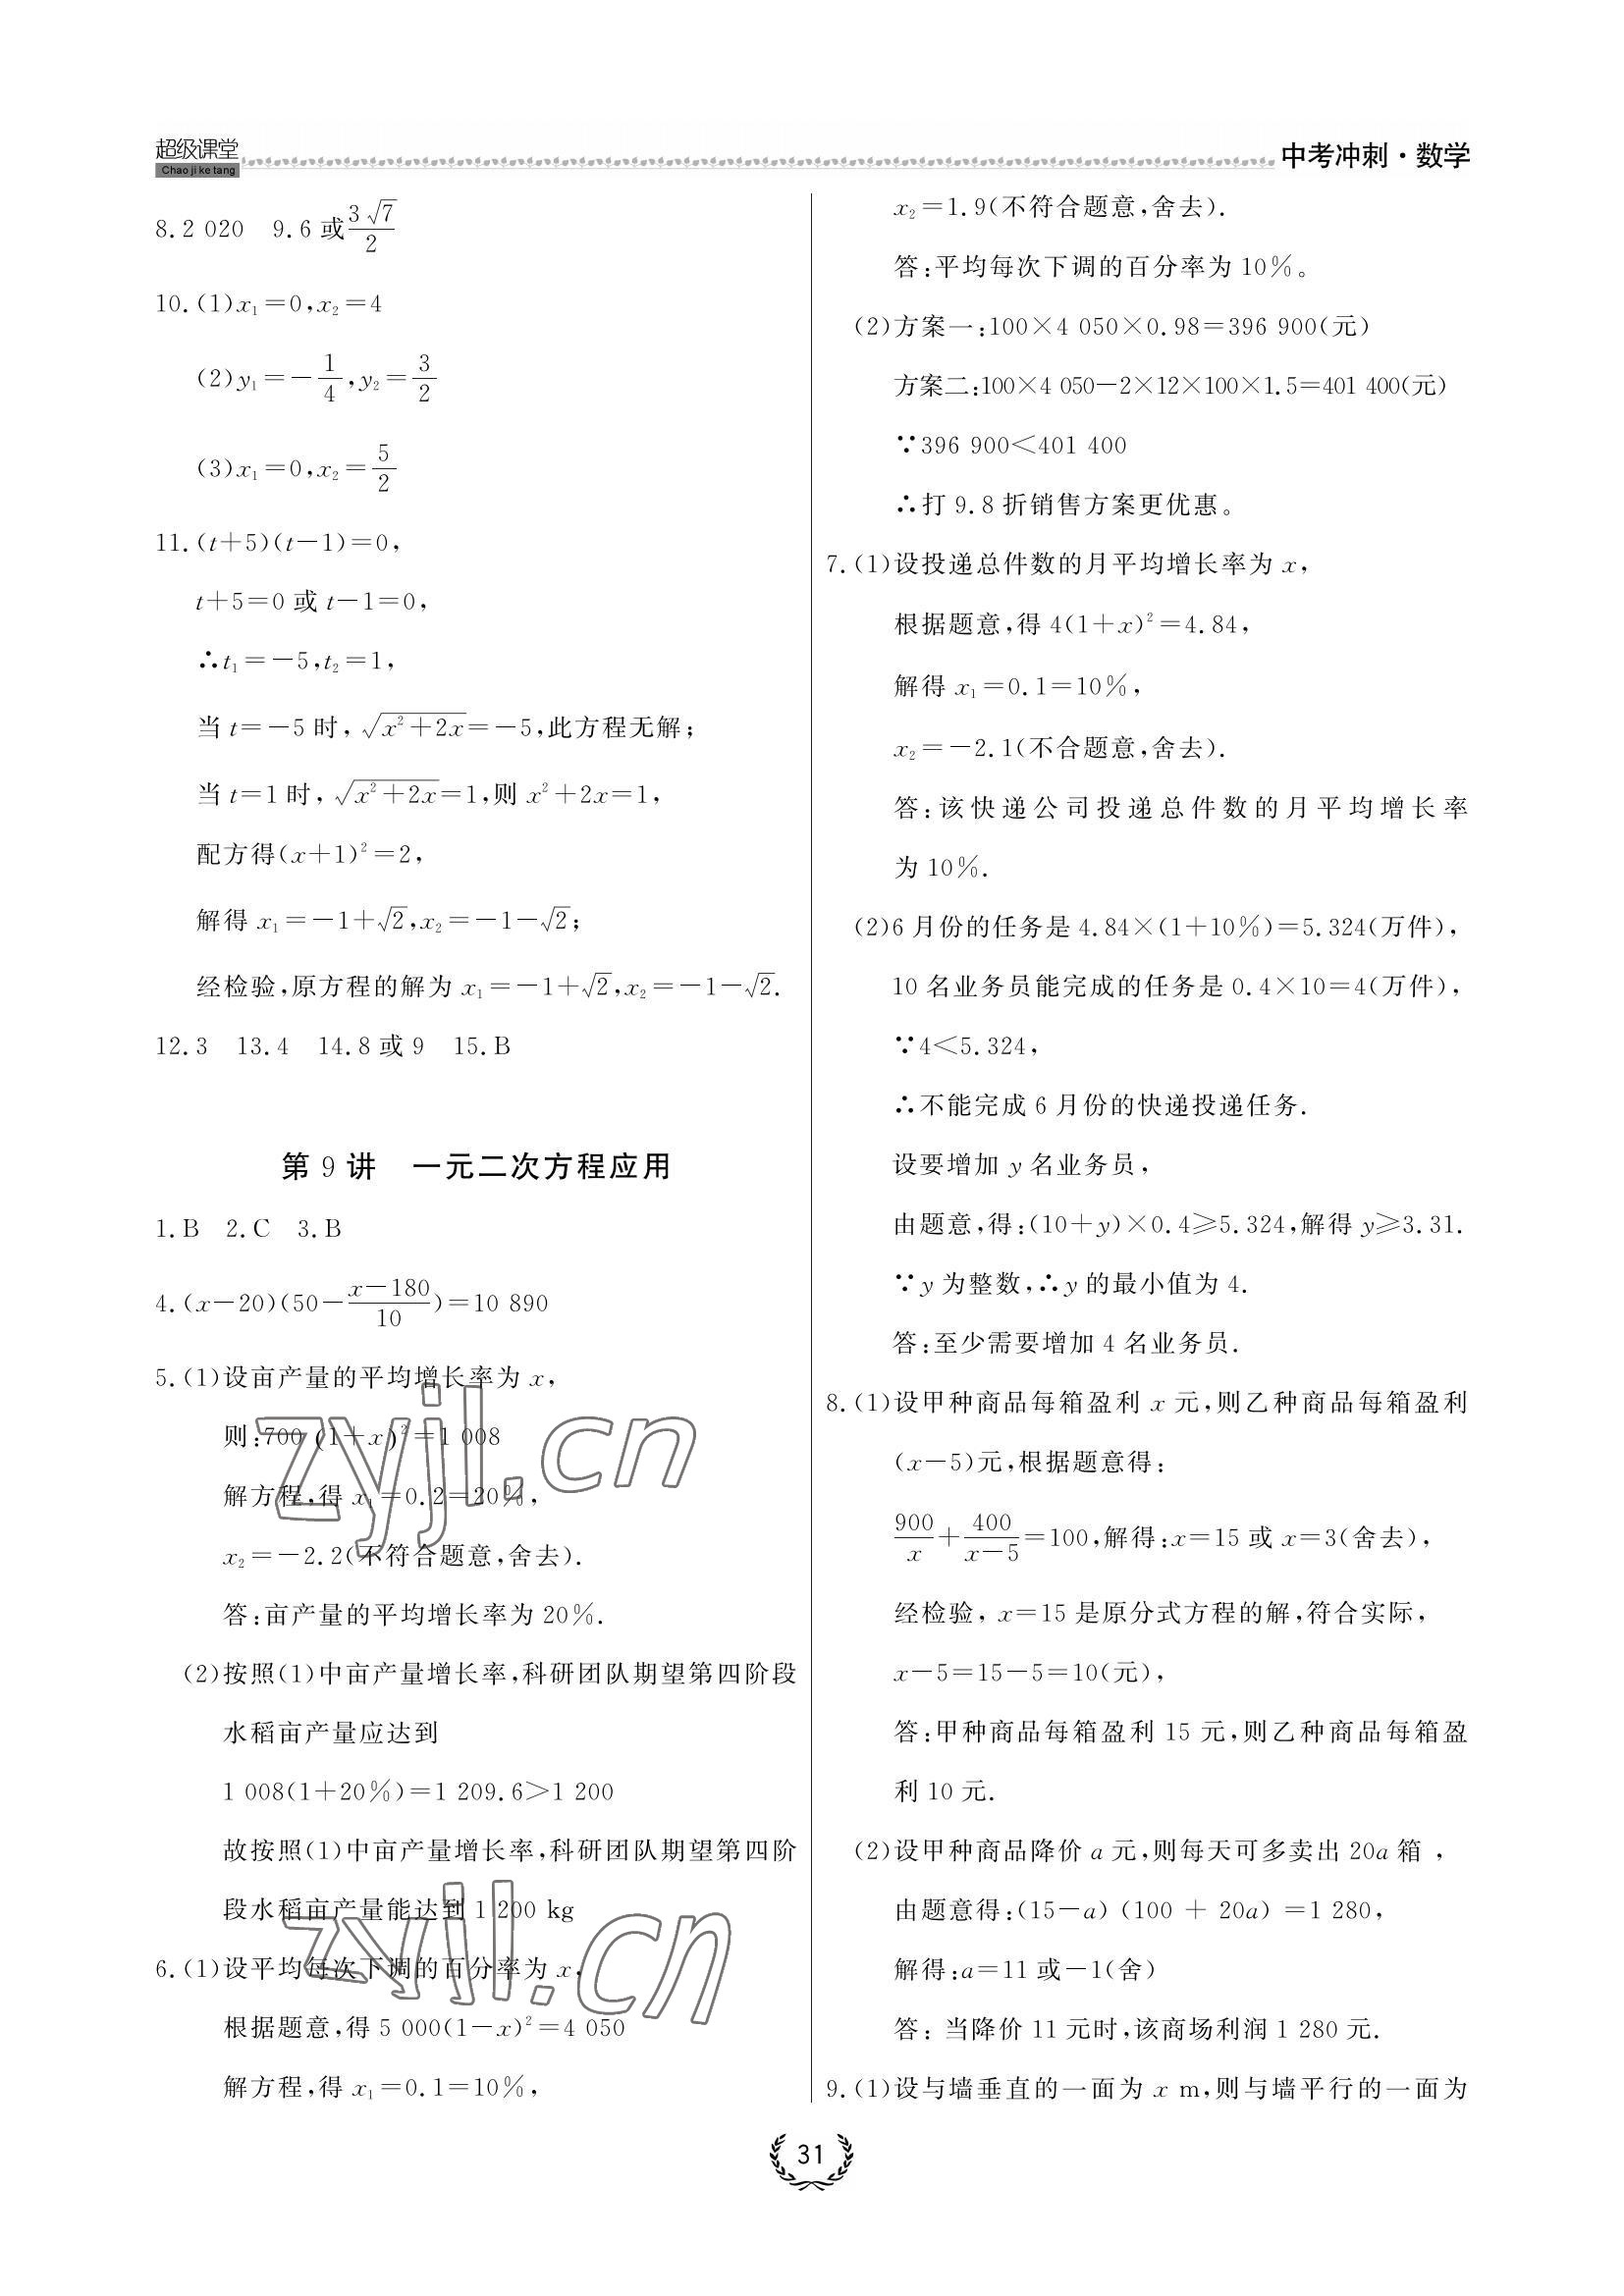 超级课堂
Chao ji ke tang
中考冲刺·数学
8.2 020　9.6或3√7/2
10.(1)x₁=0,x₂=4
(2)y₁=-1/4,y₂=3/2
(3)x₁=0,x₂=5/2
11.(t+5)(t-1)=0,
t+5=0或t-1=0,
∴t₁=-5,t₂=1,
当t=-5时,√(x²+2x)=-5,此方程无解;
当t=1时,√(x²+2x)=1,则x²+2x=1,
配方得(x+1)²=2,
解得x₁=-1+√2,x₂=-1-√2;
经检验,原方程的解为x₁=-1+√2,x₂=-1-√2.
12.3　13.4　14.8或9　15.B
第9讲　一元二次方程应用
1.B　2.C　3.B
4.(x-20)(50-(x-180)/10)=10 890
5.(1)设亩产量的平均增长率为x,
则:700(1+x)²=1 008
解方程,得x₁=0.2=20%,
x₂=-2.2(不符合题意,舍去).
答:亩产量的平均增长率为20%.
(2)按照(1)中亩产量增长率,科研团队期望第四阶段
水稻亩产量应达到
1 008(1+20%)=1 209.6>1 200
故按照(1)中亩产量增长率,科研团队期望第四阶
段水稻亩产量能达到1 200 kg
6.(1)设平均每次下调的百分率为x,
根据题意,得5 000(1-x)²=4 050
解方程,得x₁=0.1=10%,
x₂=1.9(不符合题意,舍去).
答:平均每次下调的百分率为10%。
(2)方案一:100×4 050×0.98=396 900(元)
方案二:100×4 050-2×12×100×1.5=401 400(元)
∵396 900<401 400
∴打9.8折销售方案更优惠。
7.(1)设投递总件数的月平均增长率为x,
根据题意,得4(1+x)²=4.84,
解得x₁=0.1=10%,
x₂=-2.1(不合题意,舍去).
答:该快递公司投递总件数的月平均增长率
为10%.
(2)6月份的任务是4.84×(1+10%)=5.324(万件),
10名业务员能完成的任务是0.4×10=4(万件),
∵4<5.324,
∴不能完成6月份的快递投递任务.
设要增加y名业务员,
由题意,得:(10+y)×0.4⩾5.324,解得y⩾3.31.
∵y为整数,∴y的最小值为4.
答:至少需要增加4名业务员.
8.(1)设甲种商品每箱盈利x元,则乙种商品每箱盈利
(x-5)元,根据题意得:
900/x+400/(x-5)=100,解得:x=15或x=3(舍去),
经检验,x=15是原分式方程的解,符合实际,
x-5=15-5=10(元),
答:甲种商品每箱盈利15元,则乙种商品每箱盈
利10元.
(2)设甲种商品降价a元,则每天可多卖出20a箱,
由题意得:(15-a)(100+20a)=1 280,
解得:a=11或-1(舍)
答:当降价11元时,该商场利润1 280元.
9.(1)设与墙垂直的一面为x m,则与墙平行的一面为
zyjl.cn
zyjl.cn
31